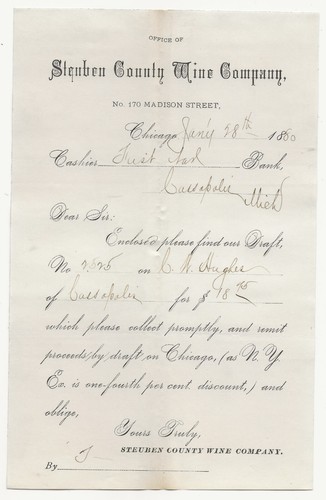 OFFICE OF
Steuben County Wine Company,
No. 170 MADISON STREET,
Chicago Jan'y 28th 1880
Cashier First Nat Bank,
Cassopolis Mich
Dear Sir:
Enclosed please find our Draft,
No 2525 on C. W. Hughes
of Cassopolis for $ 18 95
which please collect promptly, and remit
proceeds by draft on Chicago, (as N. Y.
Ex. is one-fourth per cent. discount,) and
oblige,
Yours Truly,
STEUBEN COUNTY WINE COMPANY.
By